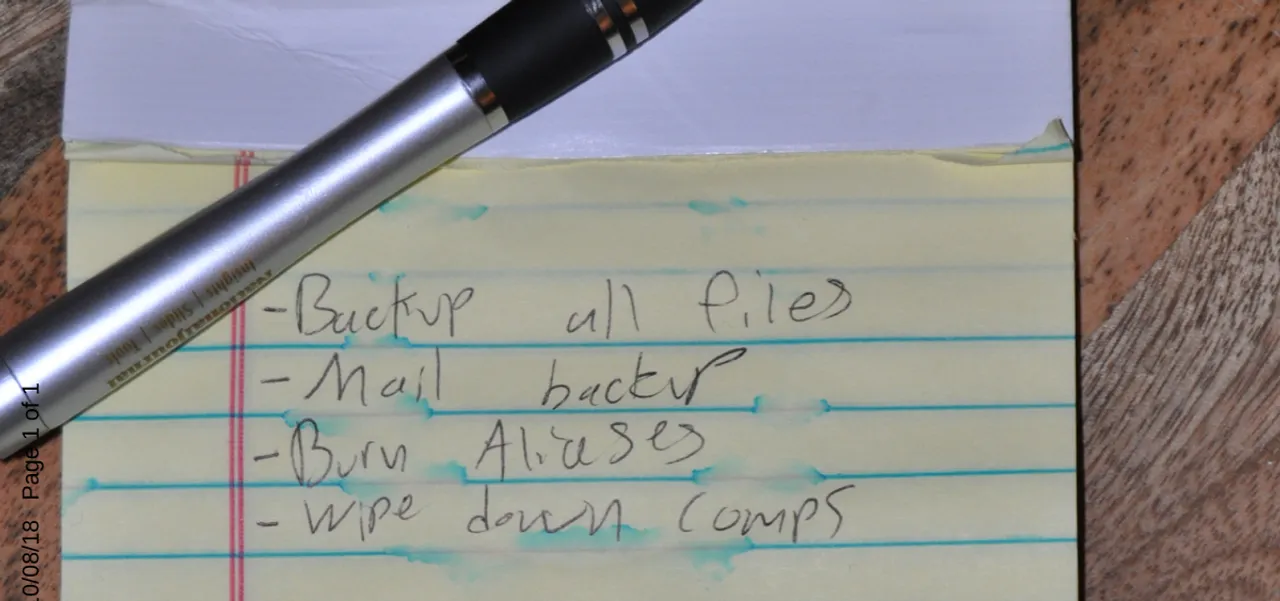 -Backup all files
-Mail backup
-Burn Aliases
-Wipe down comps
NationalJournal
Insights | Slides | Tools
10/08/18 Page 1 of 1